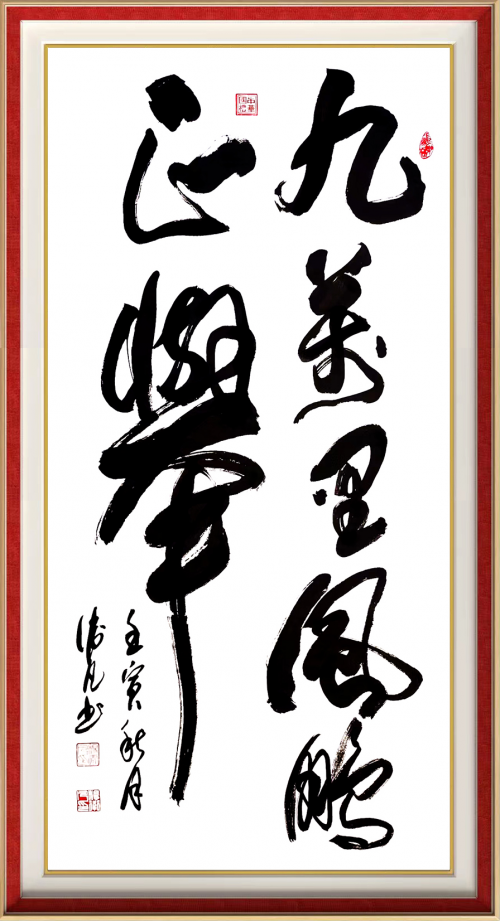 九萬里風鵬
正舉
壬寅秋月
凡书